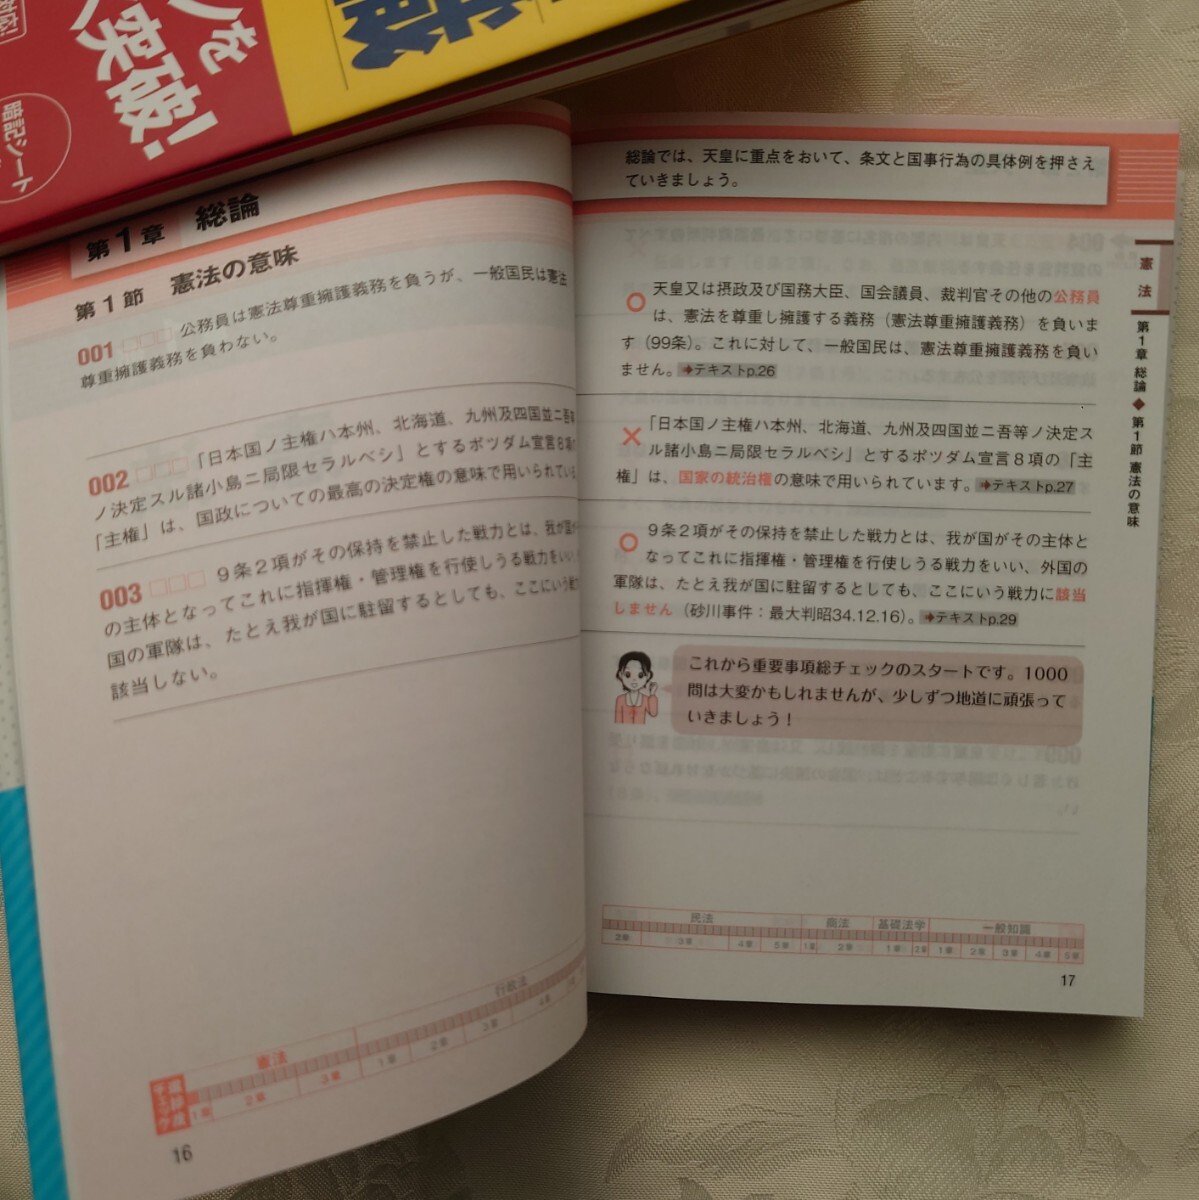 ンを
突破!
暗記シート
第1章 総論
第1節 憲法の意味
001 □□□ 公務員は憲法尊重擁護義務を負うが、一般国民は憲法
尊重擁護義務を負わない。
002 □□□ 「日本国ノ主権ハ本州、北海道、九州及四国並ニ吾等
ノ決定スル諸小島ニ局限セラルベシ」とするポツダム宣言8項の
「主権」は、国政についての最高の決定権の意味で用いられている。
003 □□□ 9条2項がその保持を禁止した戦力とは、我が国が
の主体となってこれに指揮権・管理権を行使しうる戦力をいい、
国の軍隊は、たとえ我が国に駐留するとしても、ここにいう戦力
該当しない。
憲法 行政法
1章 2章 3章 1章 2章 3章 4章
16
総論では、天皇に重点をおいて、条文と国事行為の具体例を押さえ
ていきましょう。
○ 天皇又は摂政及び国務大臣、国会議員、裁判官その他の公務員
は、憲法を尊重し擁護する義務（憲法尊重擁護義務）を負いま
す（99条）。これに対して、一般国民は、憲法尊重擁護義務を負い
ません。➜テキストp.26
× 「日本国ノ主権ハ本州、北海道、九州及四国並ニ吾等ノ決定ス
ル諸小島ニ局限セラルベシ」とするポツダム宣言8項の「主
権」は、国家の統治権の意味で用いられています。➜テキストp.27
○ 9条2項がその保持を禁止した戦力とは、我が国がその主体と
なってこれに指揮権・管理権を行使しうる戦力をいい、外国の
軍隊は、たとえ我が国に駐留するとしても、ここにいう戦力に該当
しません（砂川事件：最大判昭34.12.16）。➜テキストp.29
これから重要事項総チェックのスタートです。1000
問は大変かもしれませんが、少しずつ地道に頑張って
いきましょう！
民法 商法 基礎法学 一般知識
2章 3章 4章 5章 1章 2章 1章 2章 1章 2章 3章 4章 5章
17
憲法
第1章 総論◆第1節 憲法の意味